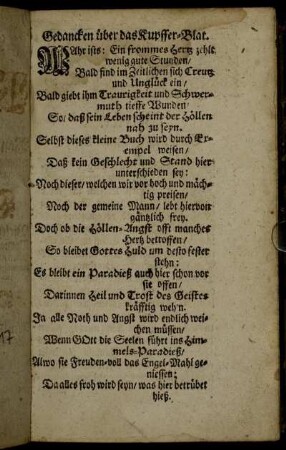 Gedancken über das Kupffer-Blat.
WAhr ists: Ein frommes Hertz zehlt
wenig gute Stunden/
Bald find im Zeitlichen sich Creutz
und Unglück ein/
Bald giebt ihm Traurigkeit und Schwer-
muth tieffe Wunden
So/ daß sein Leben scheint der Höllen
nah zu seyn.
Selbst dieses kleine Buch wird durch Ex-
empel weisen/
Daß kein Geschlecht und Stand hier-
unterschieden sey:
Noch dieser/ welchen wir vor hoch und mäch-
tig preisen/
Noch der gemeine Mann/ lebt hiervon
gäntzlich frey.
Doch ob die Höllen-Angst offt manches
Hertz betroffen/
So bleibet Gottes Huld um desto fester
stehn:
Es bleibt ein Paradieß auch hier schon vor
sie offen/
Darinnen Heil und Trost des Geistes
kräfftig wehn.
Ja alle Noth und Angst wird endlich wei-
chen müssen/
Wenn GOtt die Seelen führt ins Him-
mels-Paradieß/
Alwo sie Freuden-voll das Engel-Mahl ge-
niessen:
Da alles froh wird seyn/ was hier betrübet
hieß.
17